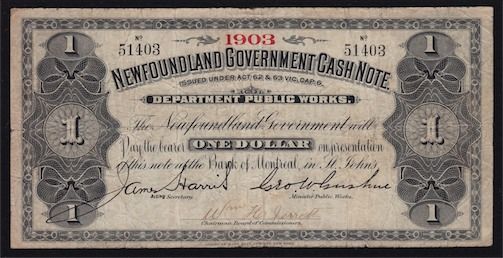 1 1903 1
Nº 51403 Nº 51403
NEWFOUNDLAND GOVERNMENT CASH NOTE.
ISSUED UNDER ACT 62 & 63 VIC. CAP. 6.
FOR
DEPARTMENT PUBLIC WORKS.
The Newfoundland Government will
1 Pay the bearer ONE DOLLAR on presentation 1
of this note at the Bank of Montreal, in St. John's
James Harris Geo W Gushue
Acting Secretary. Minister Public Works.
Chairman Board of Commissioners.
1 1